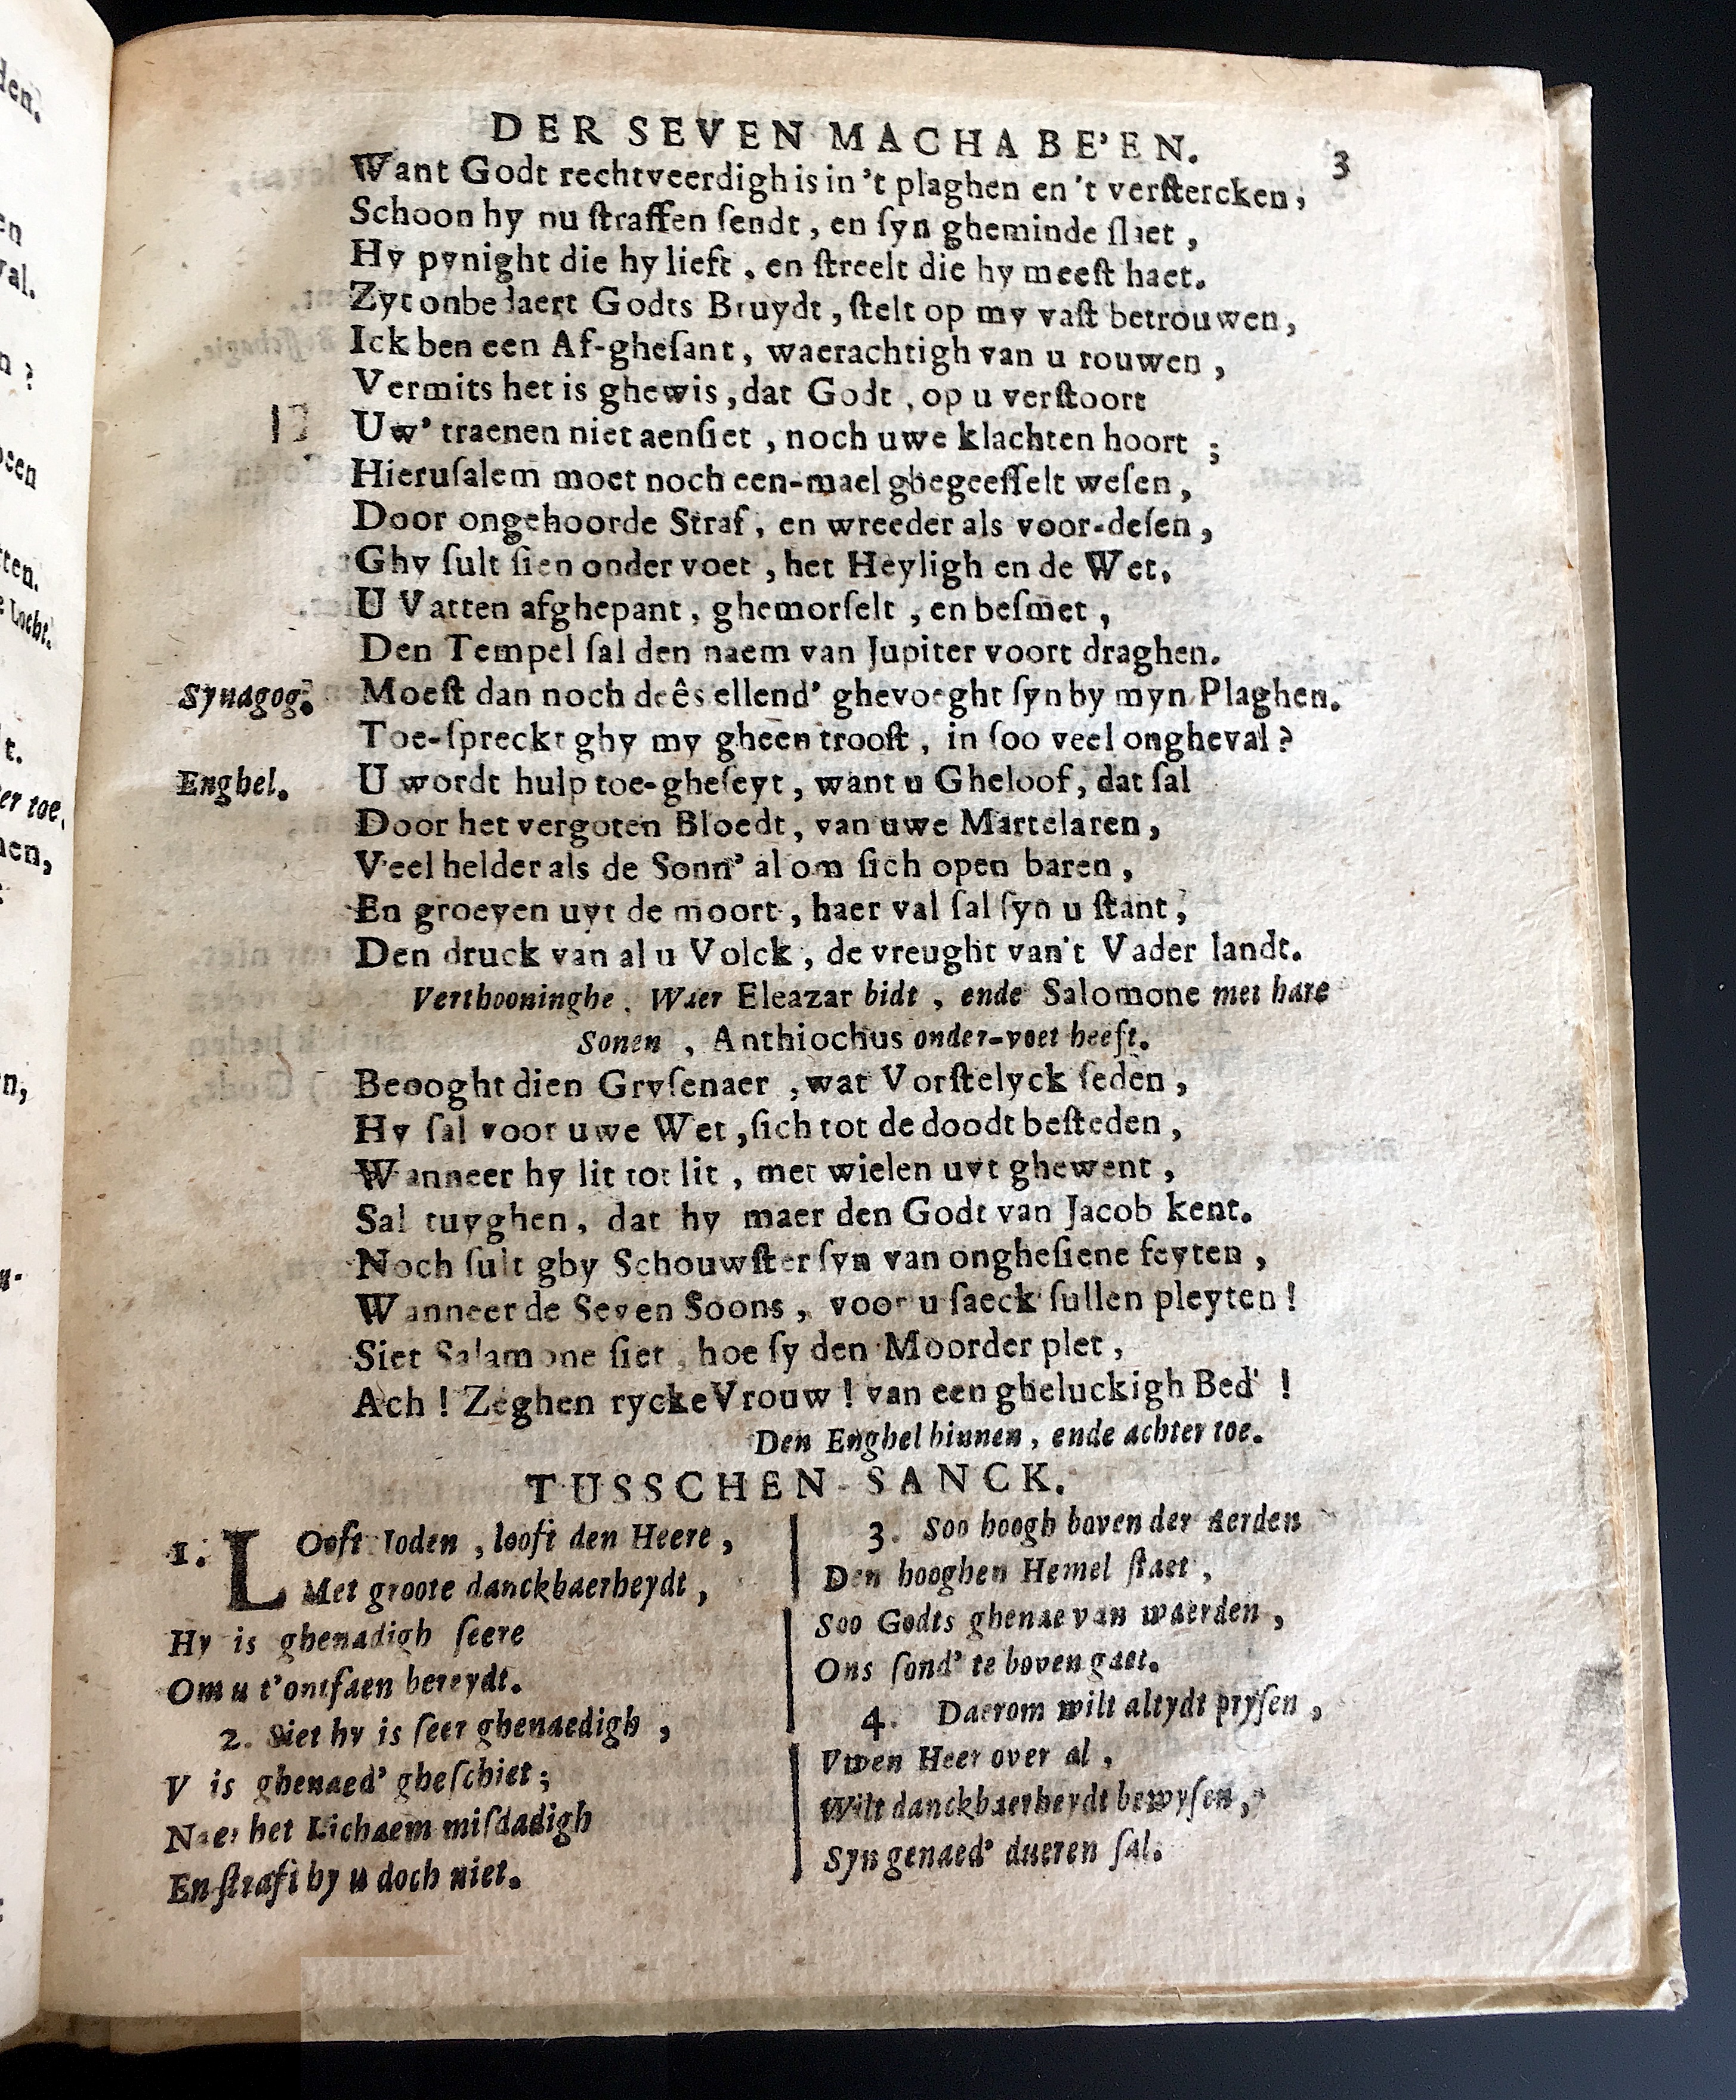 DER SEVEN MACHABE'EN. 3
Want Godt rechtveerdigh is in 't plaghen en 't verſtercken,
Schoon hy nu ſtraffen ſendt, en ſyn gheminde ſlaet,
Hy pynight die hy lieft, en ſtreelt die hy meeſt haet.
Zyt onbedaert Godts Bruydt, ſtelt op my vaſt betrouwen,
Ick ben een Af-gheſant, waerachtigh van u rouwen,
Vermits het is ghewis, dat Godt, op u verſtoort
Uw' traenen niet aenſiet, noch uwe klachten hoort;
Hieruſalem moet noch een-mael ghegeeſſelt weſen,
Door ongehoorde Straf, en wreeder als voor-deſen,
Ghy ſult ſien onder voet, het Heyligh en de Wet,
U Vatten afghepant, ghemorſelt, en beſmet,
Den Tempel ſal den naem van Jupiter voort draghen.
Synagog. Moeſt dan noch deês ellend' ghevoeght ſyn by myn Plaghen.
Toe-ſpreckt ghy my gheen trooſt, in ſoo veel ongheval?
Enghel. U wordt hulp toe-gheſeyt, want u Gheloof, dat ſal
Door het vergoten Bloedt, van uwe Martelaren,
Veel helder als de Sonn' al om ſich open baren,
En groeyen uyt de moort, haer val ſal ſyn u ſtant,
Den druck van al u Volck, de vreught van't Vader landt.
Verthooninghe, Waer Eleazar bidt, ende Salomone met hare
Sonen, Anthiochus onder-voet heeft.
Beooght dien Gryſenaer, wat Vorſtelyck ſeden,
Hy ſal voor uwe Wet, ſich tot de doodt beſteden,
Wanneer hy lit tot lit, met wielen uyt ghewent,
Sal tuyghen, dat hy maer den Godt van Jacob kent.
Noch ſult ghy Schouwſter ſyn van ongheſiene feyten,
Wanneer de Seven Soons, voor u ſaeck ſullen pleyten!
Siet Salamone ſiet, hoe ſy den Moorder plet,
Ach! Zeghen rycke Vrouw! van een gheluckigh Bed'!
Den Enghel binnen, ende achter toe.
TUSSCHEN-SANCK.
1. LOoft Ioden, looft den Heere,
Met groote danckbaerheydt,
Hy is ghenadigh ſeere
Om u t'ontfaen bereydt.
2. Siet hy is ſeer ghenaedigh,
V is ghenaed' gheſchiet;
Naer het Lichaem miſdadigh
En ſtraft hy u doch niet.
3. Soo hoogh boven der aerden
Den hooghen Hemel ſtaet,
Soo Godts ghenae van waerden,
Ons ſond' te boven gaet.
4. Daerom wilt altydt pryſen,
Vwen Heer over al,
Wilt danckbaerheydt bewyſen,
Syn genaed' dueren ſal.